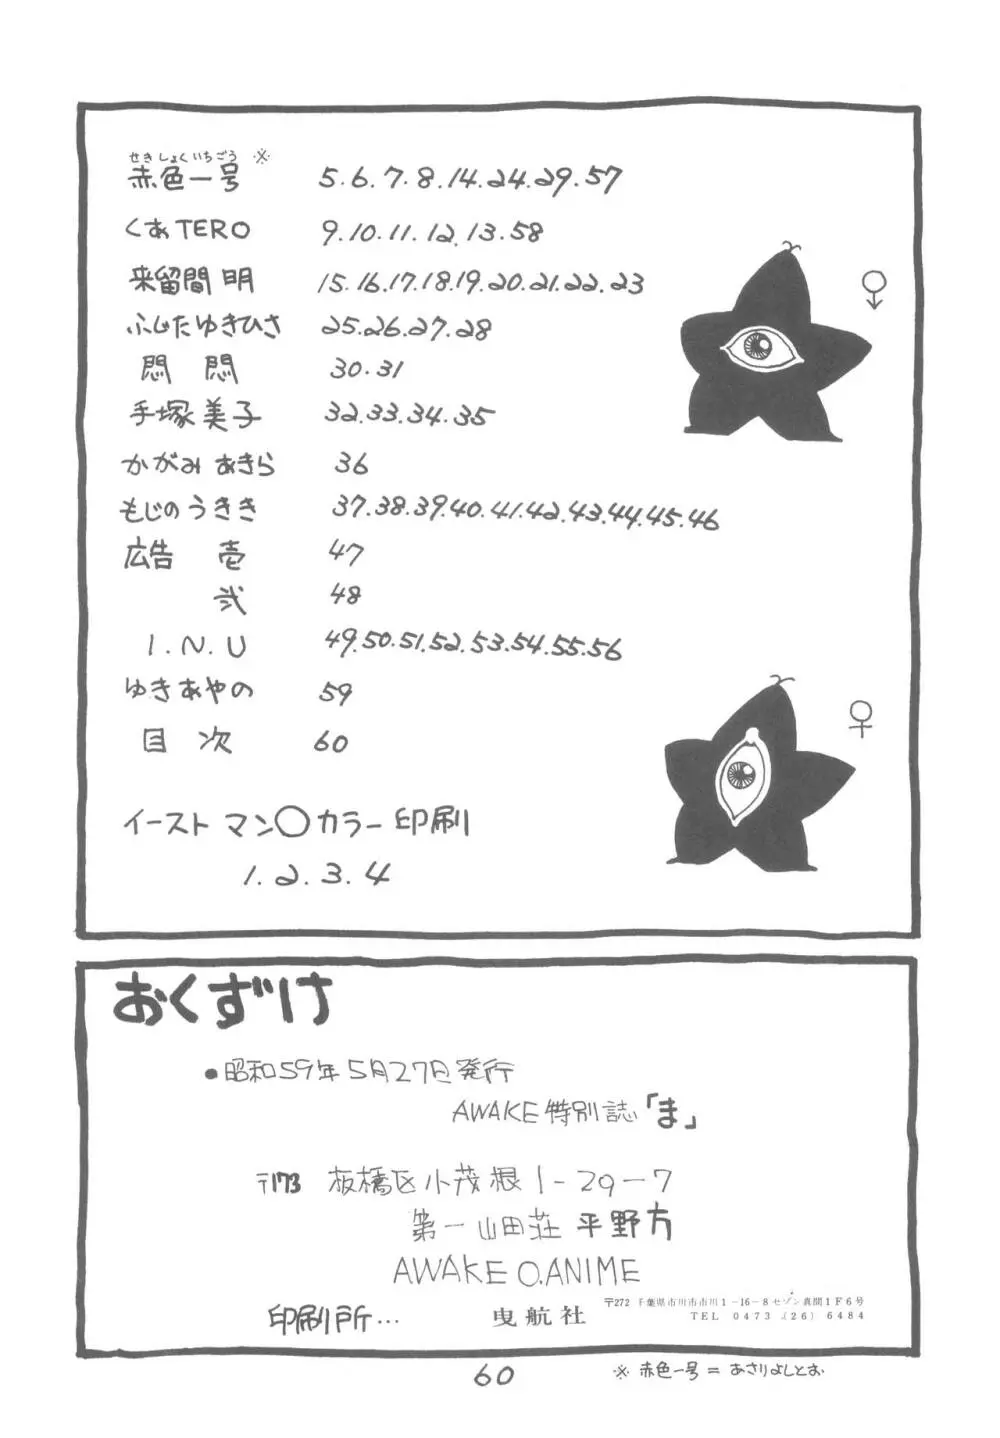 せきしょくいちごう
赤色一号 ※ 5.6.7.8.14.24.29.57
くあTERO 9.10.11.12.13.58
来留間明 15.16.17.18.19.20.21.22.23
ふじたゆきひさ 25.26.27.28
悶悶 30.31
手塚美子 32.33.34.35
かがみあきら 36
もじのうきき 37.38.39.40.41.42.43.44.45.46
広告 壱 47
弐 48
I.N.U 49.50.51.52.53.54.55.56
ゆきあやの 59
目次 60
イーストマン〇カラー印刷
1.2.3.4
♂
♀
おくずけ
●昭和59年5月27日発行
AWAKE特別誌「ま」
〒173 板橋区小茂根1-29-7
第一山田荘 平野方
AWAKE O.ANIME
印刷所… 曳航社
〒272 千葉県市川市市川1-16-8セゾン真間1F6号
TEL 0473 (26) 6484
60
※ 赤色一号 = あさりよしとお